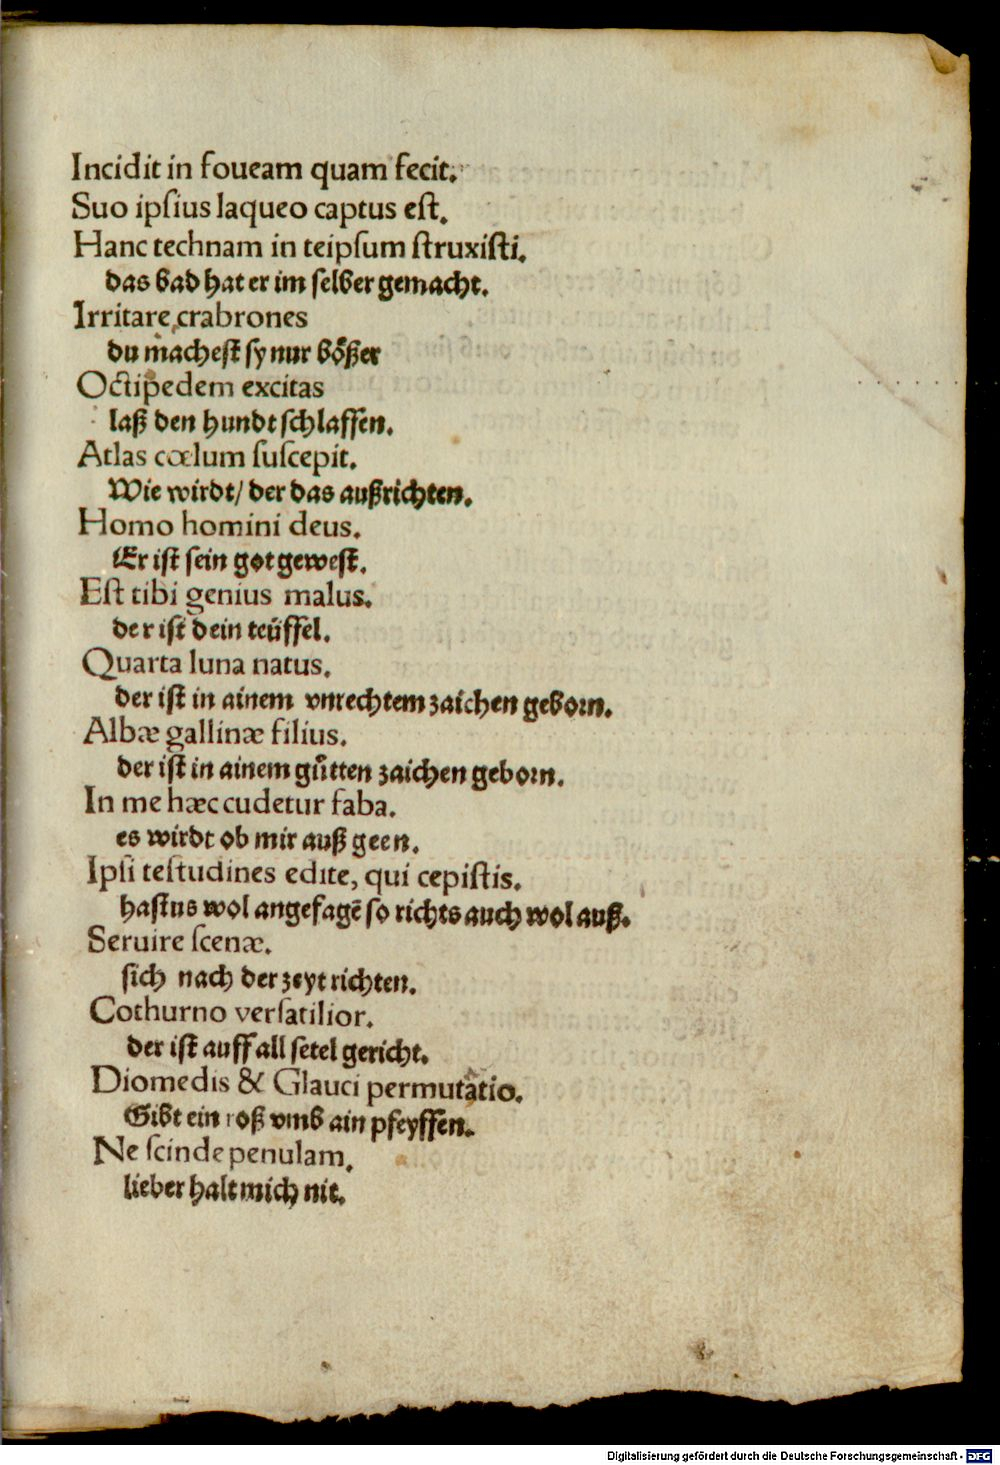 Incidit in foueam quam fecit.
Suo ipſius laqueo captus eſt.
Hanc technam in teipſum ſtruxiſti.
das bad hat er im ſelber gemacht.
Irritare crabrones
du macheſt ſy nur boͤßer
Octipedem excitas
laß den hundt ſchlaffen.
Atlas cœlum ſuſcepit.
Wie wirdt/ der das außrichten.
Homo homini deus.
Er iſt ſein got geweſt.
Eſt tibi genius malus.
der iſt dein teüffel.
Quarta luna natus.
der iſt in ainem vnrechtem zaichen geborn.
Albæ gallinæ filius.
der iſt in ainem guͤtten zaichen geborn.
In me hæc cudetur faba.
es wirdt ob mir auß geen.
Ipſi teſtudines edite, qui cepiſtis.
haſtus wol angefagē so richts auch wol auß.
Seruire ſcenæ.
ſich nach der zeyt richten.
Cothurno verſatilior.
der iſt auff all ſetel gericht.
Diomedis & Glauci permutatio.
Gibt ein roß vmb ain pfeyffen.
Ne ſcinde penulam.
lieber halt mich nit.
Digitalisierung gefördert durch die Deutsche Forschungsgemeinschaft - DFG